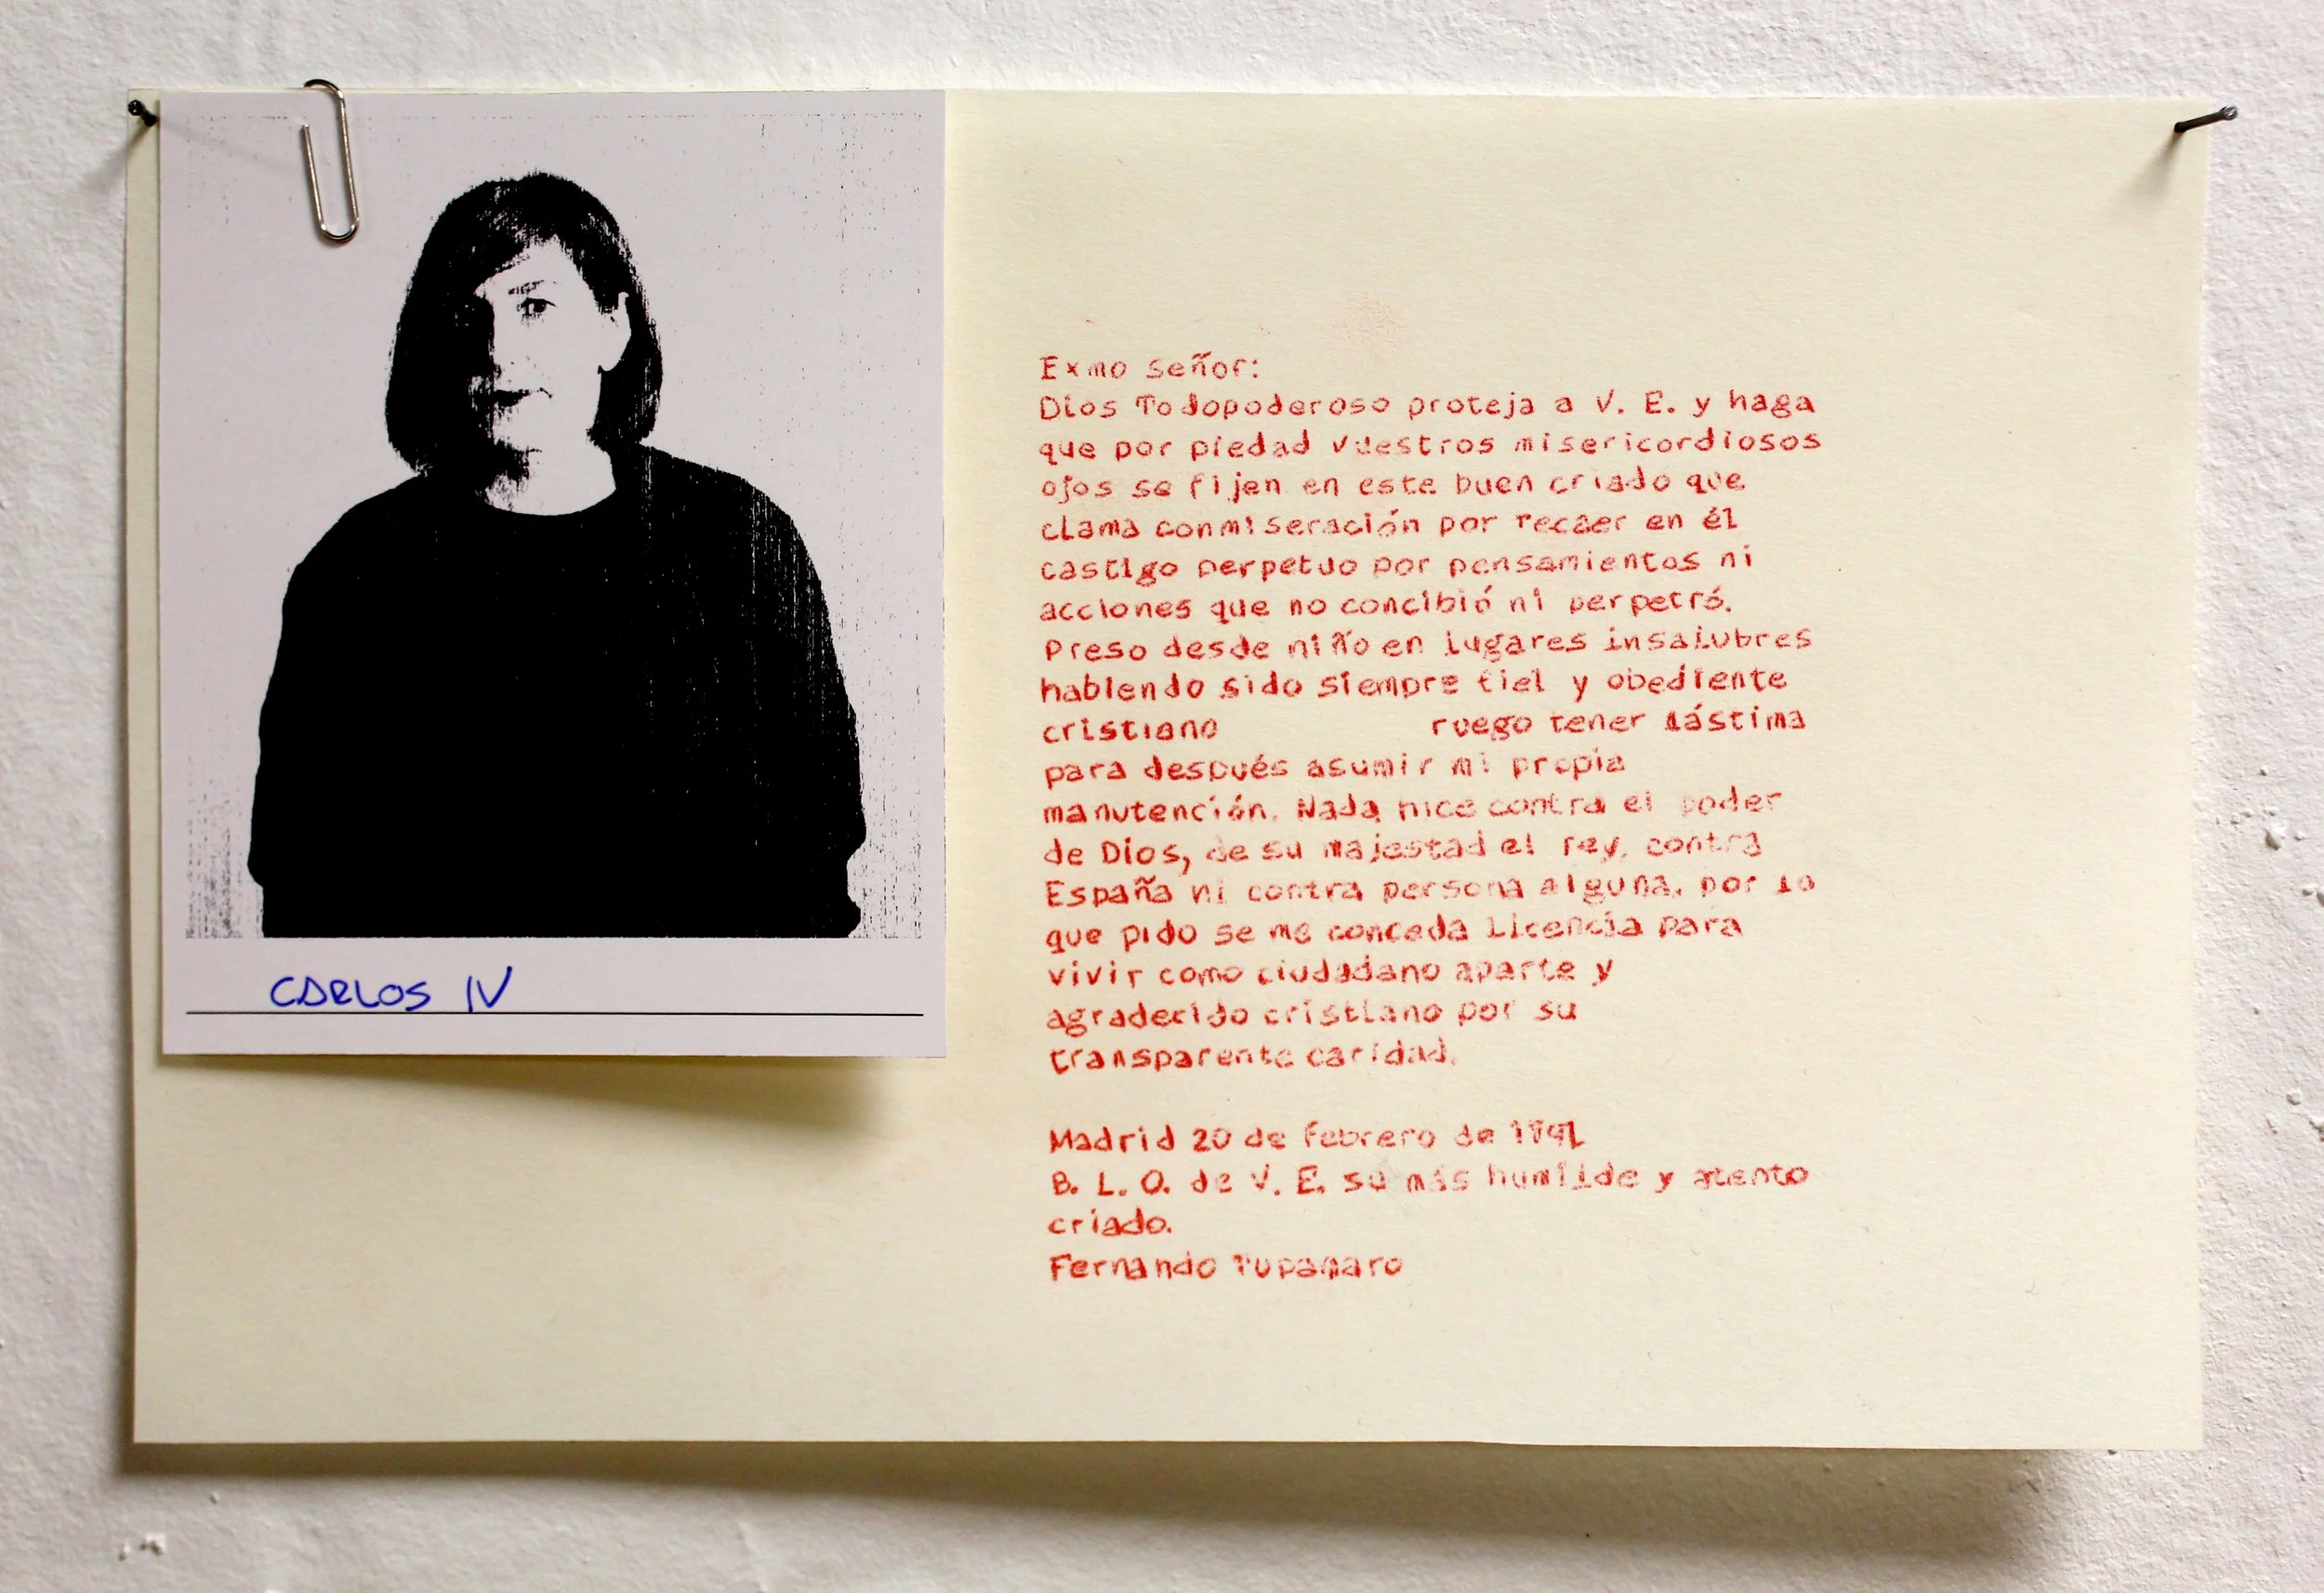 CARLOS IV
Exmo señor:
Dios Todopoderoso proteja a V. E. y haga
que por piedad vuestros misericordiosos
ojos se fijen en este buen criado que
clama conmiseración por recaer en él
castigo perpetuo por pensamientos ni
acciones que no concibió ni perpetró.
Preso desde niño en lugares insalubres
habiendo sido siempre fiel y obediente
cristiano ruego tener lástima
para después asumir mi propia
manutención. Nada hice contra el poder
de Dios, de su majestad el rey, contra
España ni contra persona alguna, por lo
que pido se me conceda licencia para
vivir como ciudadano aparte y
agradecido cristiano por su
transparente caridad.
Madrid 20 de febrero de
B. L. O. de V. E. su más humilde y atento
criado.
Fernando Tupamaro